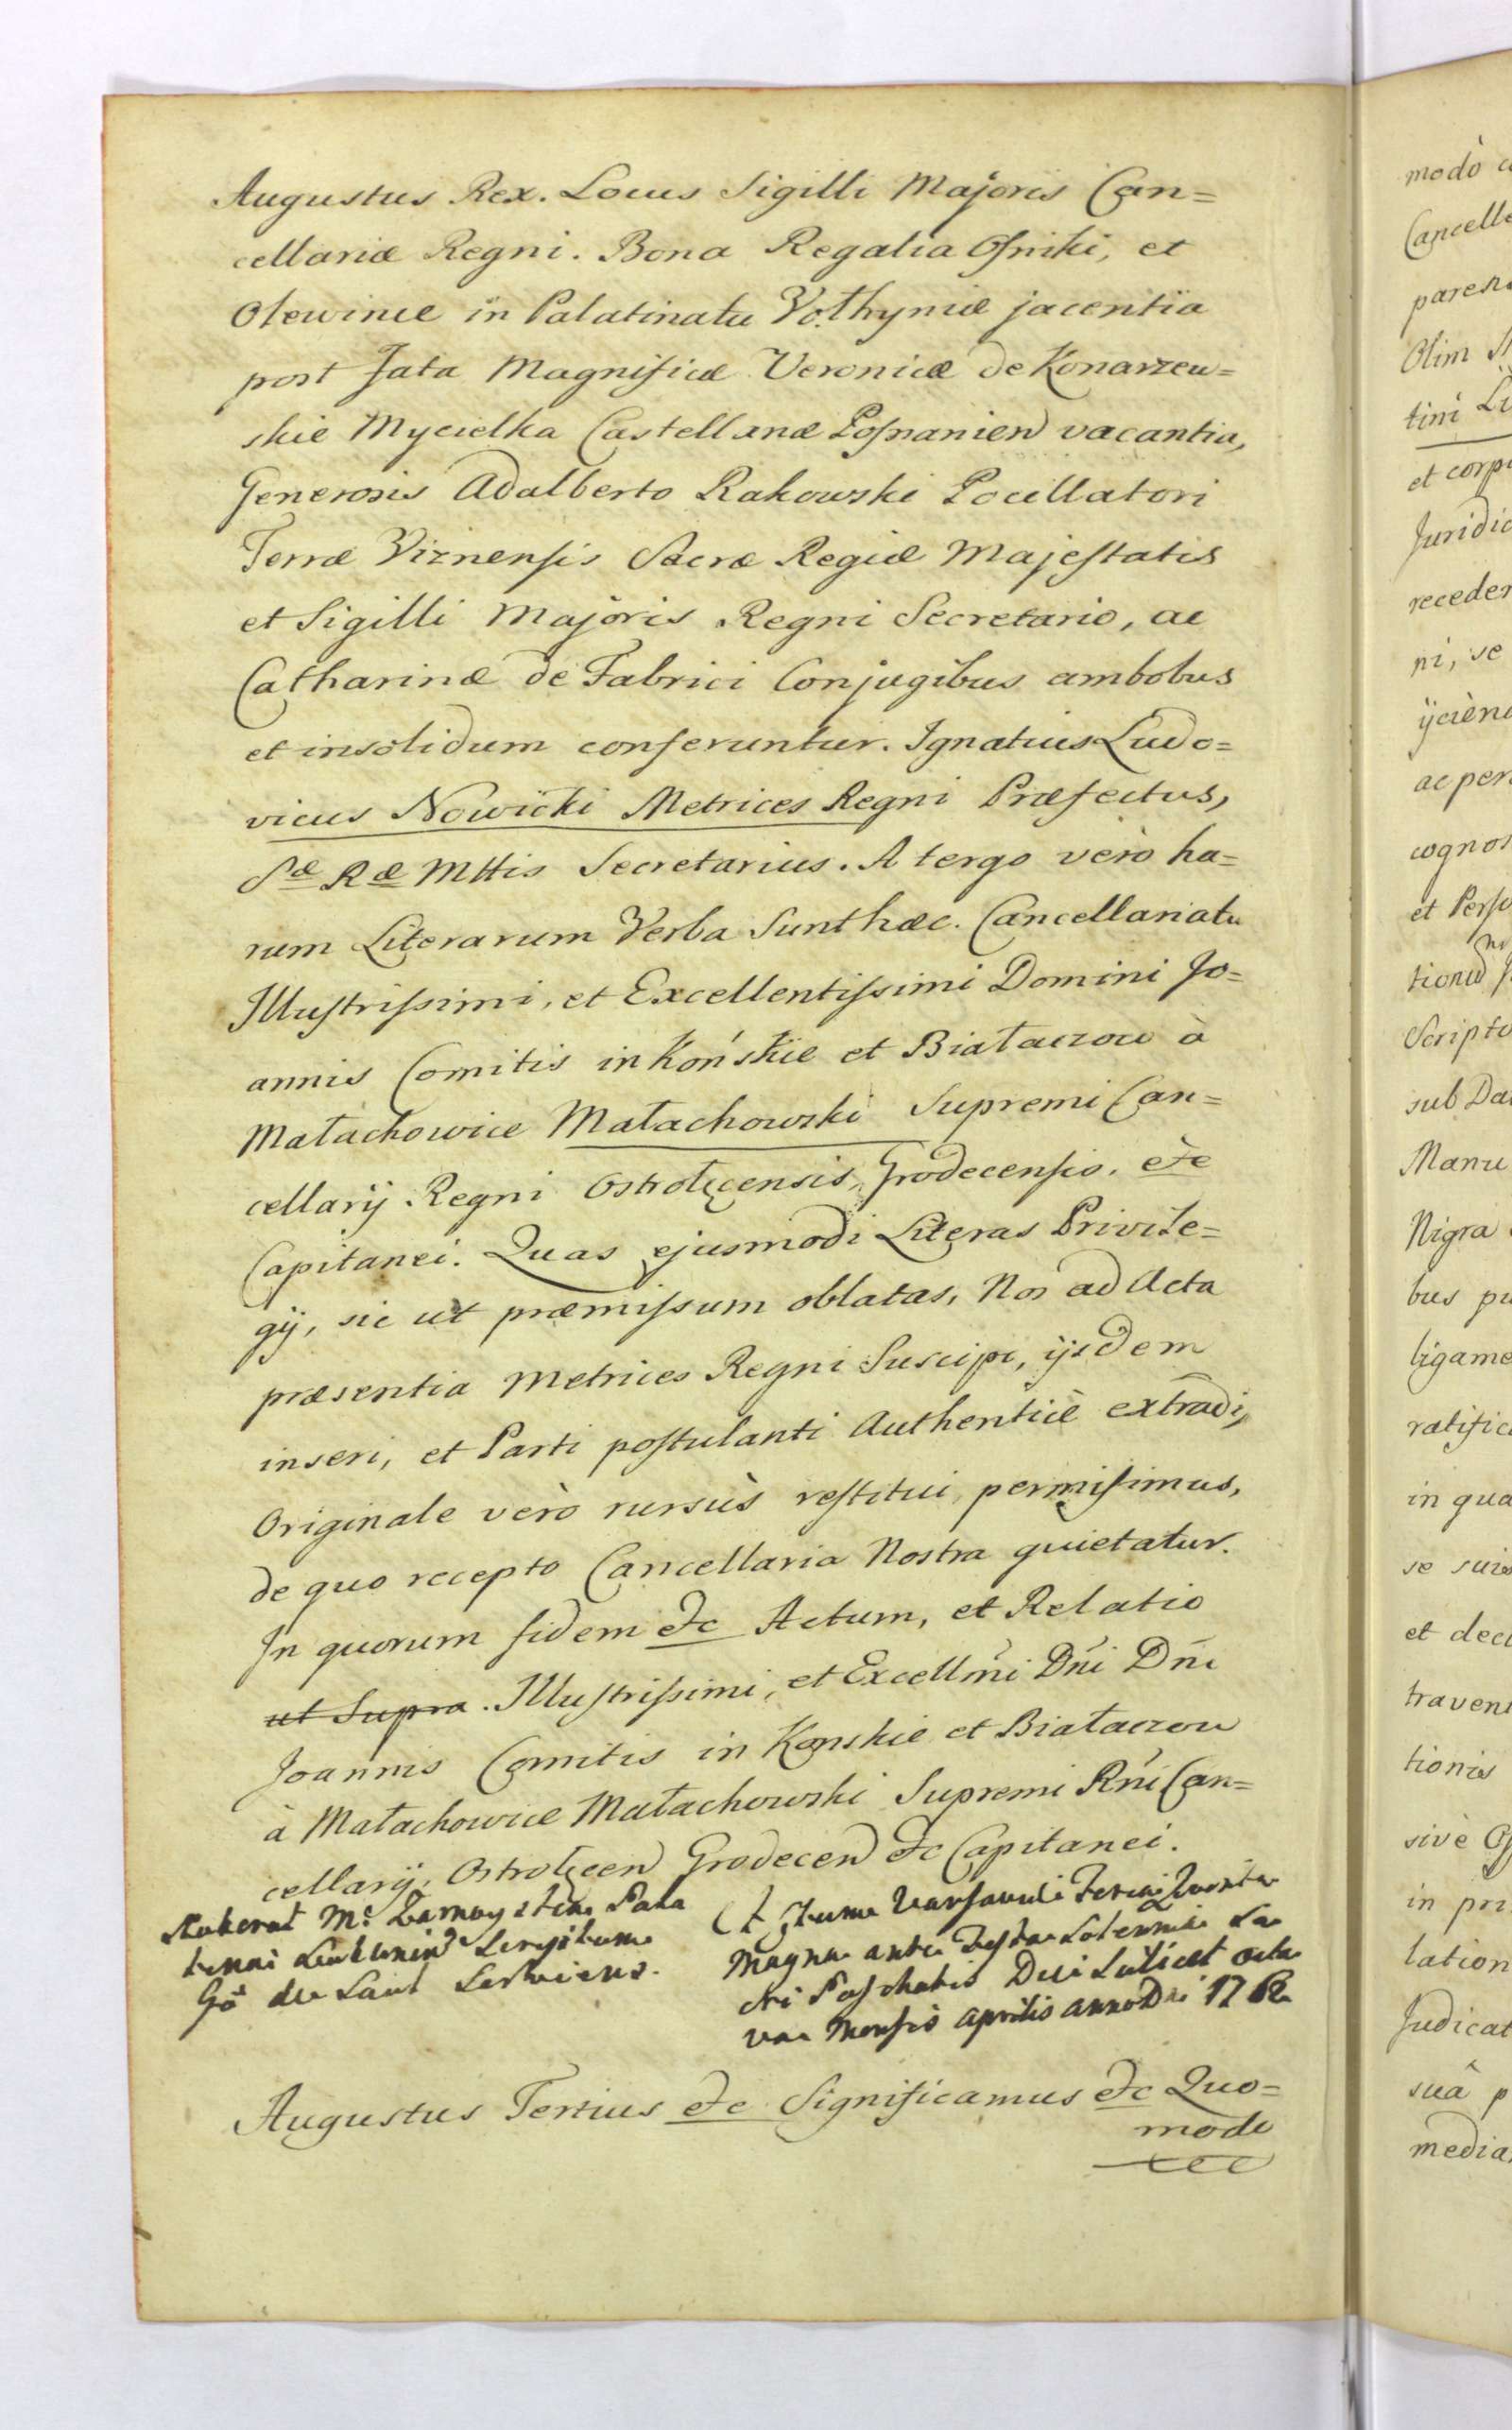 Augustus Rex. Locus Sigilli Majoris Can=
cellariæ Regni. Bona Regalia Ośniki, et
Olewince in Palatinatu Vołhyniæ jacentia
post Fata Magnificæ Veronicæ de Konarzew=
skie Mycielka Castellanæ Posnanien vacantia,
Generosis Adalberto Rakowski Pocillatori
Terræ Viznensis Sacræ Regiæ Majestatis
et Sigilli Majoris Regni Secretario, ac
Catharinæ de Fabrici Conjugibus ambobus
et insolidum conferuntur. Ignatius Ludo=
vicus Nowicki Metrices Regni Præfectus,
Sæ Ræ Mttis Secretarius. A tergo verò ha=
rum Literarum Verba Sunt hæc. Cancellariatu
Illustrissimi, et Excellentissimi Domini Jo=
annis Comitis in Końskie et Białaczow à
Małachowice Małachowski Supremi Can=
cellarij Regni Ostrołęcensis, Grodecensis. etc
Capitanei. Quas ejusmodi Literas Privile=
gij, sic ut præmissum oblatas, Nos ad Acta
præsentia Metrices Regni Suscipi, ijsdem
inseri, et Parti postulanti Authenticè extradi,
Originale verò rursùs restitui permisimus,
de quo recepto Cancellaria Nostra quietatur.
In quorum fidem etc Actum, et Relatio
ut Supra. Illustrissimi, et Excellmi Dni Dni
Joannis Comitis in Konskie et Białaczow
à Małachowice Małachowski Supremi Rni Can=
cellarij, Ostrołęcen Grodecen etc Capitanei.
Magna ante Festa Solennia Sa
cri Paschatis Dei Scilicet octa
va Mensis Aprilis Anno Dni 1762
Augustus Tertius etc Significamus etc Quo=
modo
modò
Cancell
paren
Olim
tini
et corp
Juridic
receder
ni, se
ac per
cognos
et Perso
tionu
Scripto
sub Da
Manu
Nigra
bus pu
ligame
ratific
in qua
se suis
et dec
traven
tionis
sivè
in pri
lation
Judicat
suâ p
media